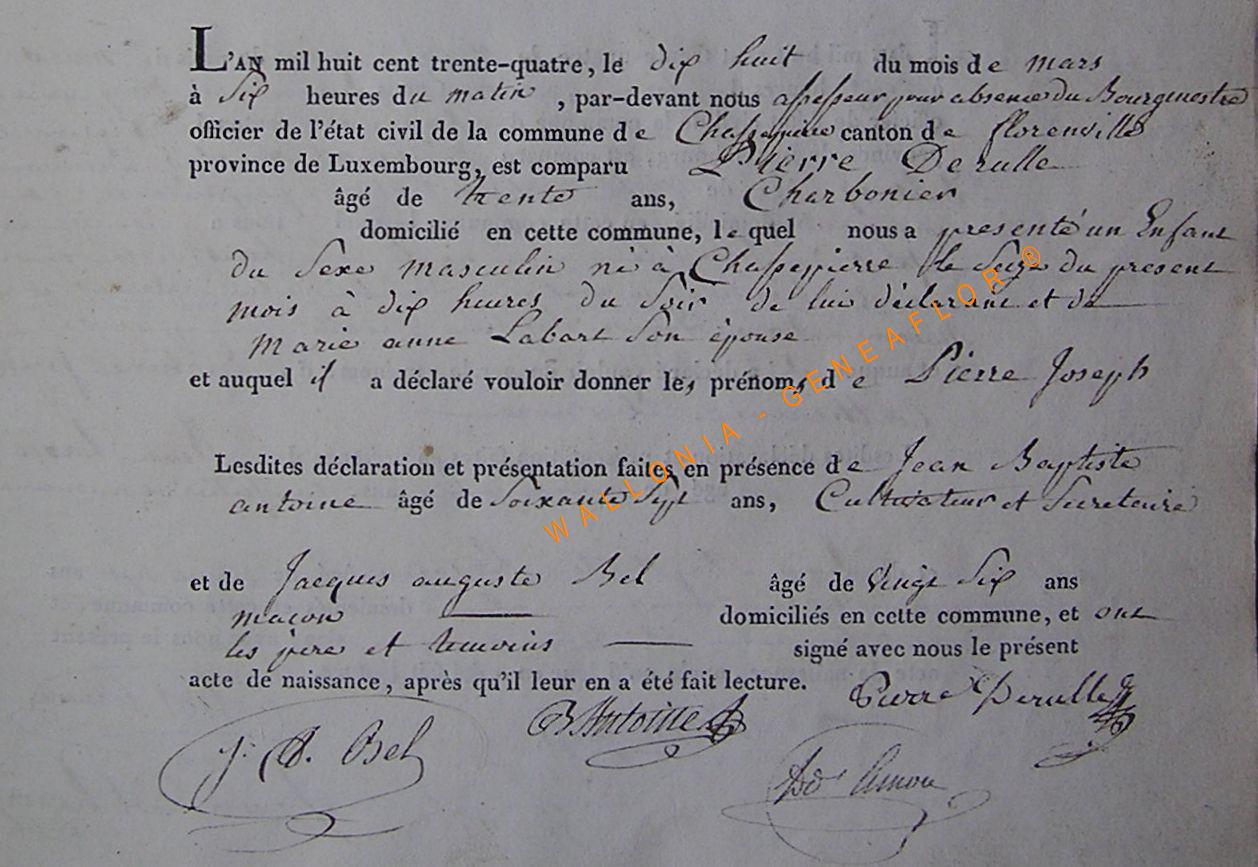 L'AN mil huit cent trente-quatre, le dix huit du mois de mars
à Six heures du matin, par-devant nous assesseur pour absence du Bourgmestre
officier de l'état civil de la commune de Chassepierre canton de florenville
province de Luxembourg, est comparu Pierre Derulle
âgé de trente ans, Charbonier
domicilié en cette commune, le quel nous a presenté un Enfant
du Sexe masculin né à Chassepierre le Seize du present
mois à dix heures du Soir de lui déclarant et de
Marie anne Labart Son épouse
et auquel il a déclaré vouloir donner les prénoms de Pierre Joseph
Lesdites déclaration et présentation faites en présence de Jean Baptiste
antoine âgé de Soixante Sept ans, Cultivateur et Secretaire
et de Jacques auguste Bel âgé de Vingt Six ans
macon domiciliés en cette commune, et ont
les père et temoins signé avec nous le présent
acte de naissance, après qu'il leur en a été fait lecture.
Pierre Derulle
J. A. Bel
JB Antoine
WALLONIA - GENEAFLOR ®